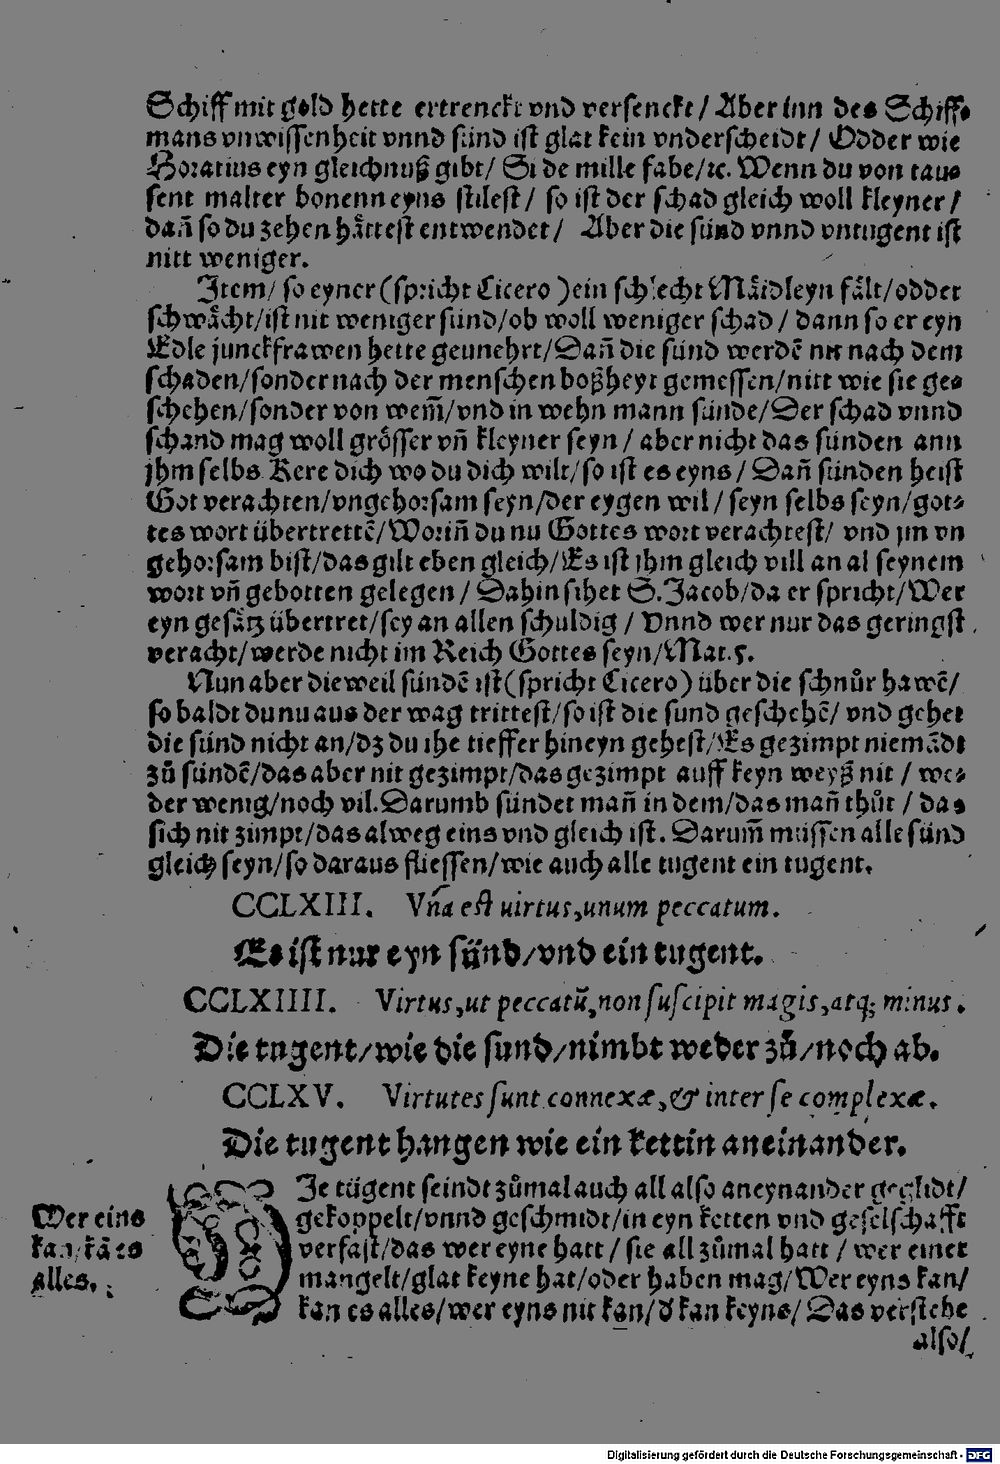 Schiff mit gold hette ertrenckt vnd versenckt / Aber inn des Schiff-
mans vnwissenheit vnnd sünd ist glat kein vnderscheidt / Odder wie
Horatius eyn gleichnuß gibt / Si de mille fabe / ꝛc. Wenn du von tau-
sent malter bonenn eyns stilest / so ist der schad gleich woll kleyner /
dañ so du zehen haͤttest entwendet / Aber die sünd vnnd vntugent ist
nitt weniger.
Item / so eyner (spricht Cicero) ein schlecht Maͤidleyn faͤlt / odder
schwaͤcht / ist nit weniger sünd / ob woll weniger schad / dann so er eyn
Edle junckfrawen hette geunehrt / Dañ die sünd werdẽ nit nach dem
schaden / sonder nach der menschen boßheyt gemessen / nitt wie sie ge-
schehen / sonder von wem̃ / vnd in wehn mann sünde / Der schad vnnd
schand mag woll groͤsser vñ kleyner seyn / aber nicht das sünden ann
jhm selbs Kere dich wo du dich wilt / so ist es eyns / Dañ sünden heist
Got verachten / vngehorsam seyn / der eygen wil / seyn selbs seyn / got-
tes wort übertrettẽ / Woriñ du nu Gottes wort verachtest / vnd jm vn
gehorsam bist / das gilt eben gleich / Es ist jhm gleich vill an al seynem
wort vñ gebotten gelegen / Dahin sihet S. Jacob / da er spricht / Wer
eyn gesaͤtz übertret / sey an allen schuldig / Vnnd wer nur das geringst
veracht / werde nicht im Reich Gottes seyn / Mat. 5.
Nun aber die weil sündẽ ist (spricht Cicero) über die schnůr hawẽ /
so baldt du nu aus der wag trittest / so ist die sund geschehẽ / vnd gehet
die sünd nicht an / dz du ihe tieffer hineyn gehest / Es gezimpt niemãdt
zů sündẽ / das aber nit gezimpt / das gezimpt auff keyn weyß nit / we-
der wenig / noch vil. Darumb sündet mañ in dem / das mañ thůt / das
sich nit zimpt / das alweg eins vnd gleich ist. Darum̃ müssen alle sünd
gleich seyn / so daraus fliessen / wie auch alle tugent ein tugent.
CCLXIII. Vña est uirtus, unum peccatum.
Es ist nur eyn sünd / vnd ein tugent.
CCLXIIII. Virtus, ut peccatũ, non suscipit magis, atq; minus.
Die tugent / wie die sund / nimbt weder zů / noch ab.
CCLXV. Virtutes sunt connexæ, & inter se complexæ.
Die tugent hangen wie ein kettin aneinander.
Wer eins
kan / kã es
alles.
DJe tügent seindt zůmal auch all also aneynander geglidt /
gekoppelt / vnnd geschmidt / in eyn ketten vnd geselschafft
verfast / das wer eyne hatt / sie all zůmal hatt / wer einer
mangelt / glat keyne hat / oder haben mag / Wer eyns kan /
kan es alles / wer eyns nit kan / d kan keyns / Das verstehe
also /
Digitalisierung gefördert durch die Deutsche Forschungsgemeinschaft - DFG